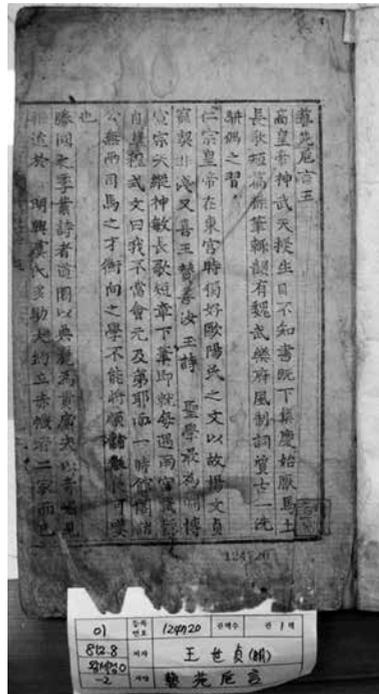 藝苑巵言五
高皇帝神武天授生目不知書既下集慶始厭馬上
長歌短篇操筆輒韻有魏武樂府風制詞質古一洗
駢偶之習
仁宗皇帝在東宮時獨好歐陽氏之文以故楊文貞
寵契非淺又喜王贊善汝玉詩 聖學最為淵博
宣宗天縱神敏長歌短章下筆即就每遇南宮試輒
自草程式文曰我不當會元及第耶而一時館閣諸
公無兩司馬之才衡向之學不能將順黼黻良可嘆
也
勝國之季業詩者道園以典麗為貴廉夫以奇崛見
推迨於 明興虞氏多助大約立赤幟者二家而已
124720
01 등록번호 124720 권책수 권 1책
812.8 저자 王世貞(明)
왕세정ㅇ
-2 서명 藝苑巵言